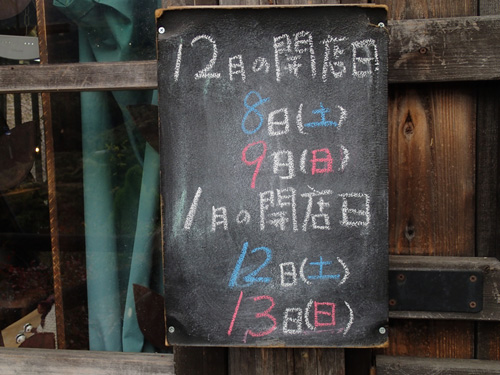 12月の開店日
8日(土)
9日(日)
1月の開店日
12日(土)
13日(日)